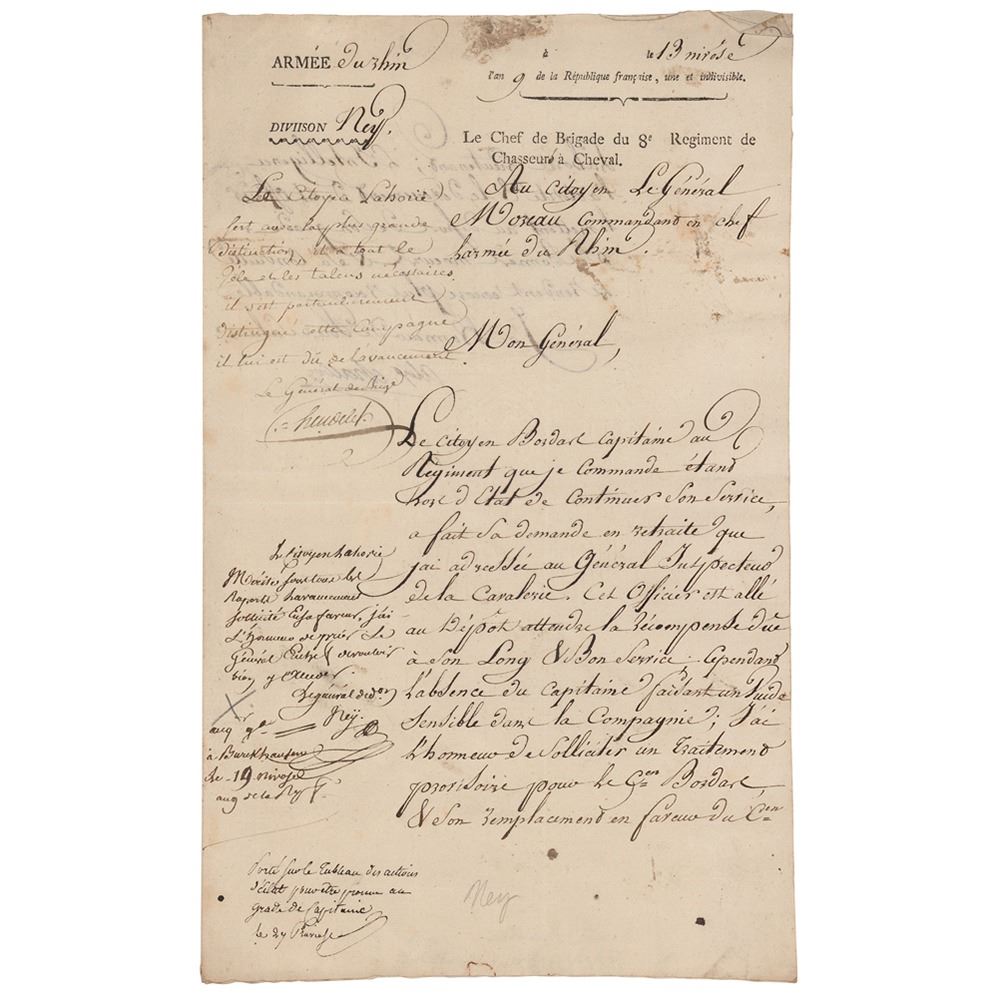 ARMÉE du rhin
à le 13 nivôse
l'an 9 de la République française, une et indivisible.
DIVIISON Ney.
Le Chef de Brigade du 8e Regiment de
Chasseurs à Cheval.
Au Citoyen Le Général
Moreau Commandant en chef
l'armée du Rhin.
Le Citoyen Lahorie
sert avec la plus grande
distinction, il a tout le
Zèle et les talens nécessaires
il s'est particulierement
distingué cette Campagne
il lui est dû de l'avancement.
Le Général de Brig.
heudelet
Mon Général,
Le Citoyen Bordart Capitaine au
Régiment que je Commande étant
hors d'Etat de Continuer Son Service,
a fait Sa demande en retraite que
j'ai adressée au Général Inspecteur
de la Cavalerie. Cet Officier est allé
au Dépôt attendre la récompense düe
à Son Long & Bon Service; Cependant
l'absence du Capitaine faisant un Vuide
Sensible dans la Compagnie; J'ai
l'honneur de Solliciter un Traitement
provisoire pour le Cen Bordart,
& Son remplacement en faveur du Cen
Le citoyen Lahorie
Mérite sous tous les
Raports l'avancement
sollicité En sa faveur, j'ai
L'honneur de prier le
Général En chef de vouloir
bien y
Le général de don
Ney.
au q. gl.
à Burckhausen
le 19 nivose
an 9 de la Rep. f.
Porté sur le Tableau des actions
d'éclat pour être promu au
grade de Capitaine
le 27
Ney